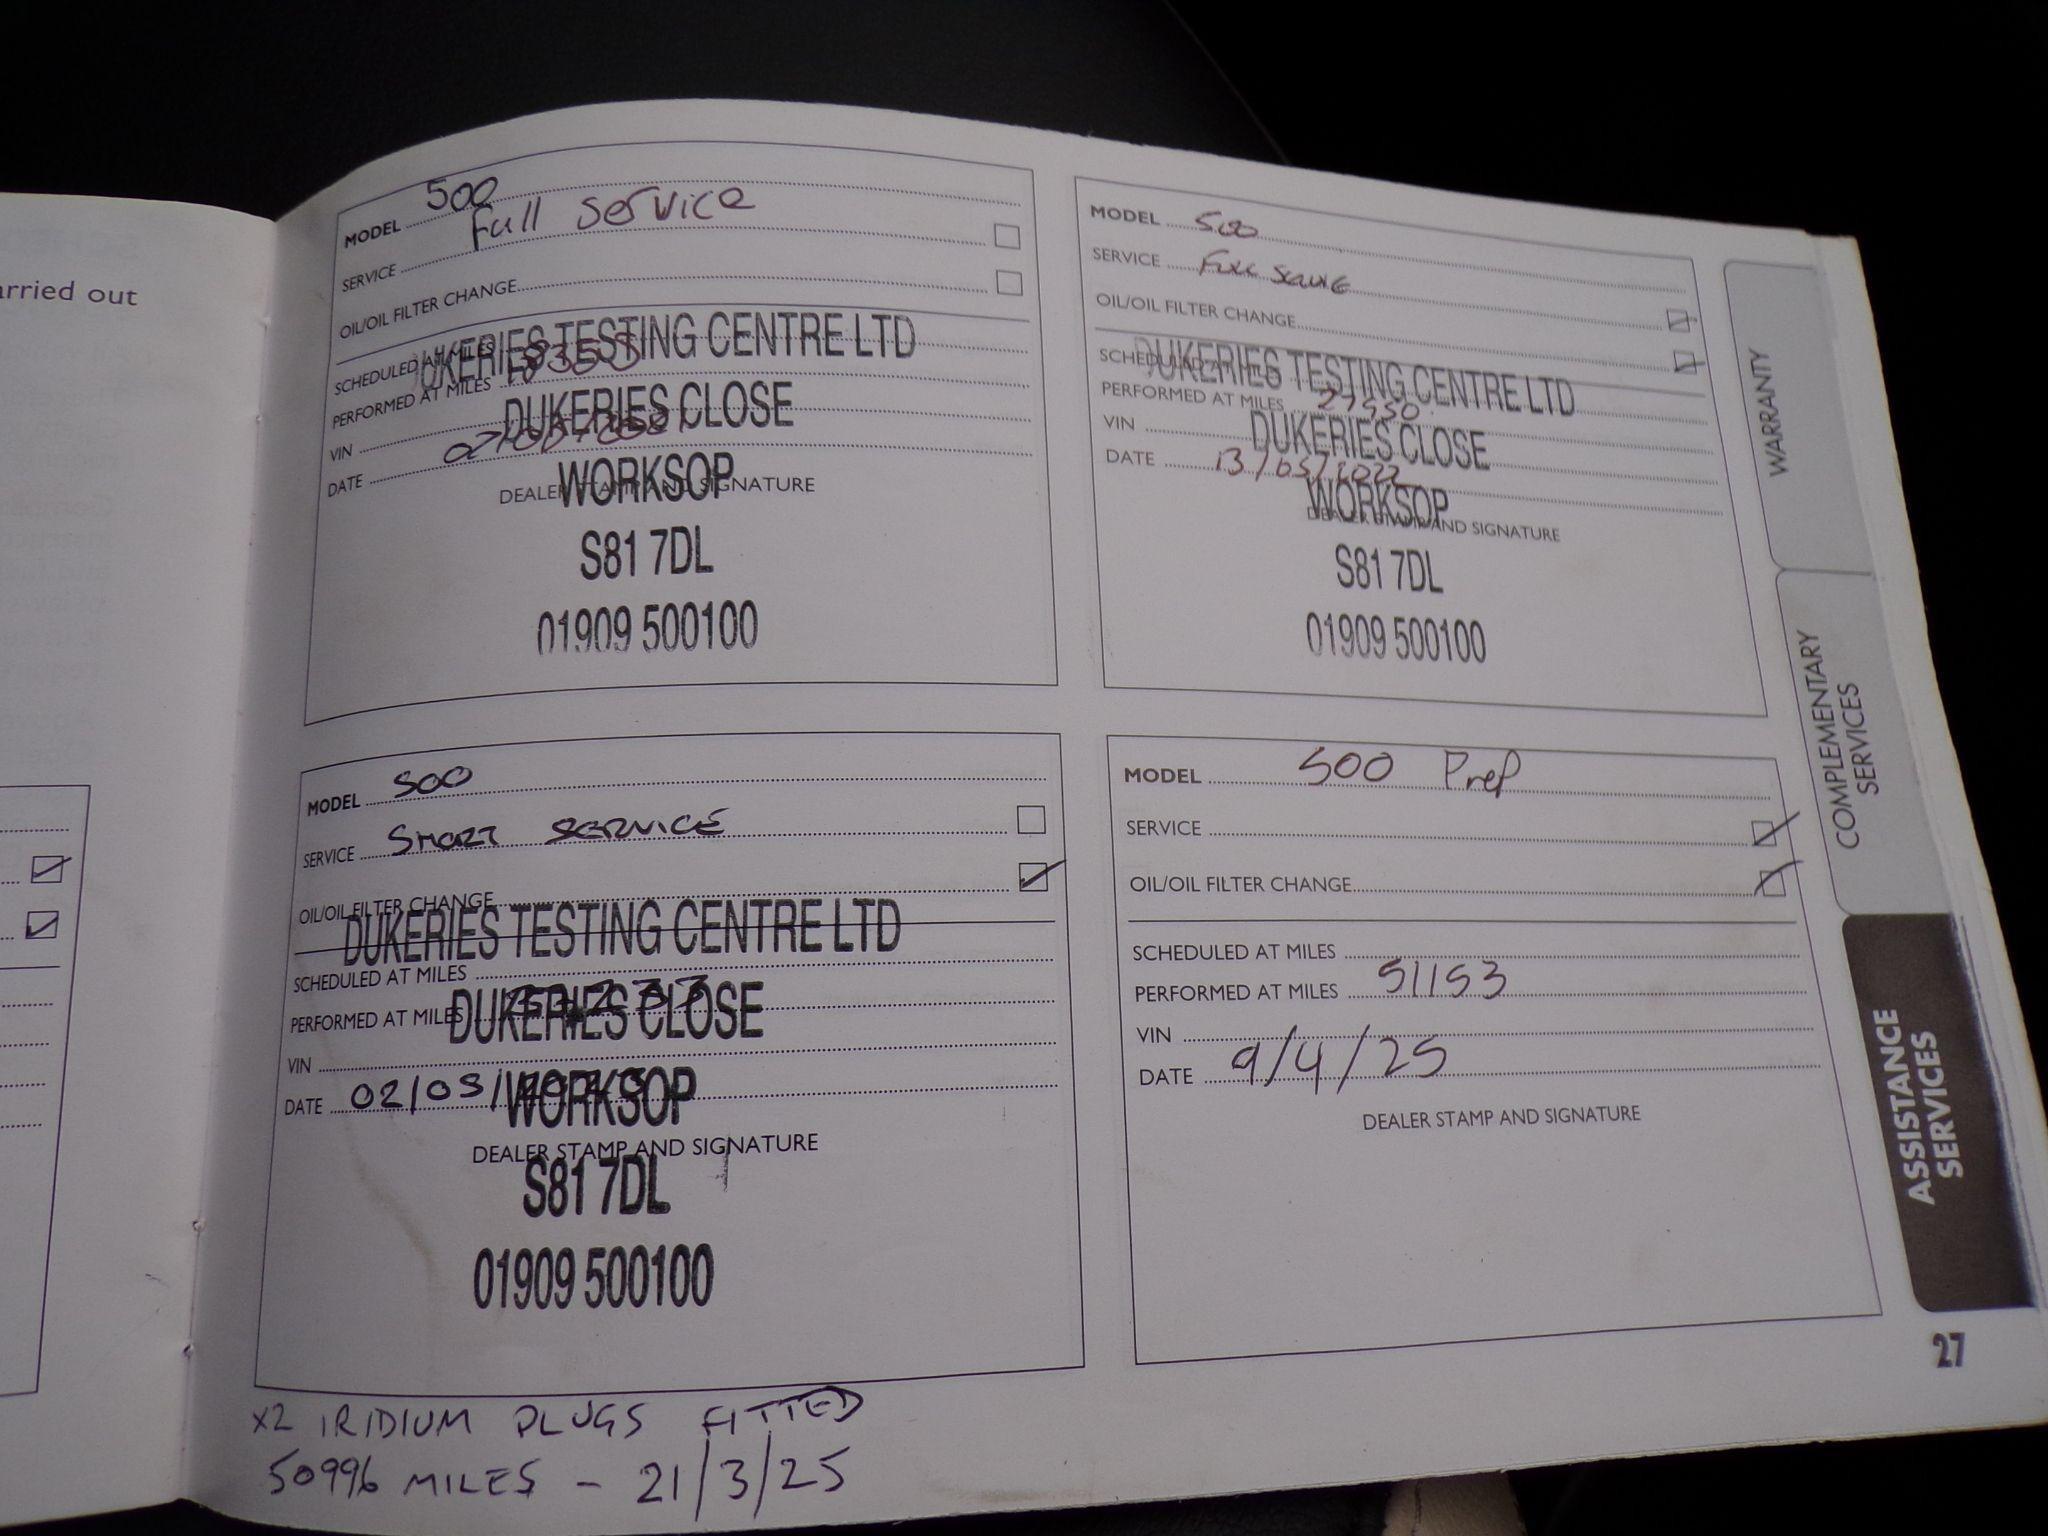 arried out
MODEL 500
SERVICE Full Service
OIL/OIL FILTER CHANGE
SCHEDULED AT MILES
PERFORMED AT MILES
VIN
DATE
DEALER STAMP AND SIGNATURE
DUKERIES TESTING CENTRE LTD
DUKERIES CLOSE
WORKSOP
S81 7DL
01909 500100
MODEL 500
SERVICE Full Service
OIL/OIL FILTER CHANGE
SCHEDULED AT MILES
PERFORMED AT MILES
VIN
DATE 13/05/2022
DEALER STAMP AND SIGNATURE
DUKERIES TESTING CENTRE LTD
DUKERIES CLOSE
WORKSOP
S81 7DL
01909 500100
MODEL 500
SERVICE SMART SERVICE
OIL/OIL FILTER CHANGE
SCHEDULED AT MILES
PERFORMED AT MILES
VIN
DATE
DEALER STAMP AND SIGNATURE
DUKERIES TESTING CENTRE LTD
DUKERIES CLOSE
WORKSOP
S81 7DL
01909 500100
MODEL 500 Prep
SERVICE
OIL/OIL FILTER CHANGE
SCHEDULED AT MILES
PERFORMED AT MILES 51153
VIN
DATE 9/4/25
DEALER STAMP AND SIGNATURE
x2 IRIDIUM PLUGS FITTED
50996 MILES - 21/3/25
WARRANTY
COMPLEMENTARY
SERVICES
ASSISTANCE
SERVICES
27